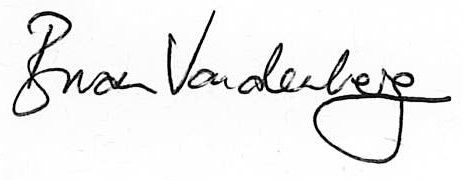 Brian Vandenberg